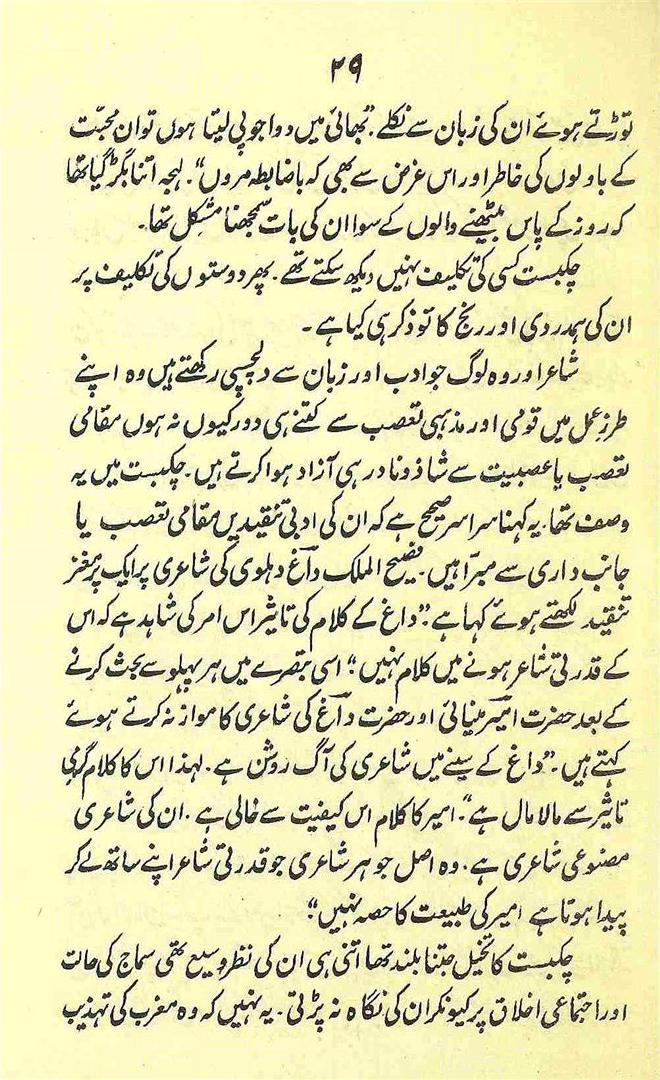 ۲۹
توڑتے ہوئے ان کی زبان سے نکلے۔ "بھائی میں دوا جو پی لیتا ہوں تو ان محبّت
کے باولوں کی خاطر اور اس غرض سے بھی کہ باضابطہ مروں"۔ لہجہ اتنا بگڑ گیا تھا
کہ روز کے پاس بیٹھنے والوں کے سوا ان کی بات سمجھنا مشکل تھا۔
چکبست کسی کی تکلیف نہیں دیکھ سکتے تھے۔ پھر دوستوں کی تکلیف پر
ان کی ہمدردی اور رنج کا تو ذکر ہی کیا ہے۔
شاعر اور وہ لوگ جو ادب اور زبان سے دلچسپی رکھتے ہیں وہ اپنے
طرزِ عمل میں قومی اور مذہبی تعصب سے کتنے ہی دور کیوں نہ ہوں مقامی
تعصب یا عصبیت سے شاذ و نادر ہی آزاد ہوا کرتے ہیں۔ چکبست میں یہ
وصف تھا۔ یہ کہنا سراسر صحیح ہے کہ ان کی ادبی تنقیدیں مقامی تعصب یا
جانب داری سے مبرّا ہیں۔ فصیح الملک داغؔ دہلوی کی شاعری پر ایک پُر مغز
تنقید لکھتے ہوئے کہا ہے۔ "داغ کے کلام کی تاثیر اس امر کی شاہد ہے کہ اس
کے قدرتی شاعر ہونے میں کلام نہیں"۔ اسی تبصرے میں ہر پہلو سے بحث کرنے
کے بعد حضرت امیرؔ مینائی اور حضرت داغؔ کی شاعری کا موازنہ کرتے ہوئے
کہتے ہیں۔ "داغ کے سینے میں شاعری کی آگ روشن ہے۔ لہذا اس کا کلام گرمی
تاثیر سے مالا مال ہے"۔ امیر کا کلام اس کیفیت سے خالی ہے۔ ان کی شاعری
مصنوعی شاعری ہے۔ وہ اصل جوہر شاعری جو قدرتی شاعر اپنے ساتھ لے کر
پیدا ہوتا ہے امیر کی طبیعت کا حصہ نہیں"۔
چکبست کا تخیل جتنا بلند تھا اتنی ہی ان کی نظر وسیع تھی سماج کی حالت
اور اجتماعی اخلاق پر کیونکر ان کی نگاہ نہ پڑتی۔ یہ نہیں کہ وہ مغرب کی تہذیب